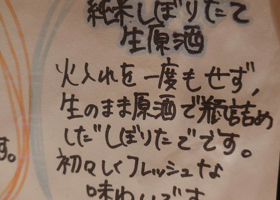 純米しぼりたて
生原酒
火入れを一度もせず,
生のまま原酒で瓶詰め
しだしぼりたでです。
初々しくフレッシュな
味わいです
す。